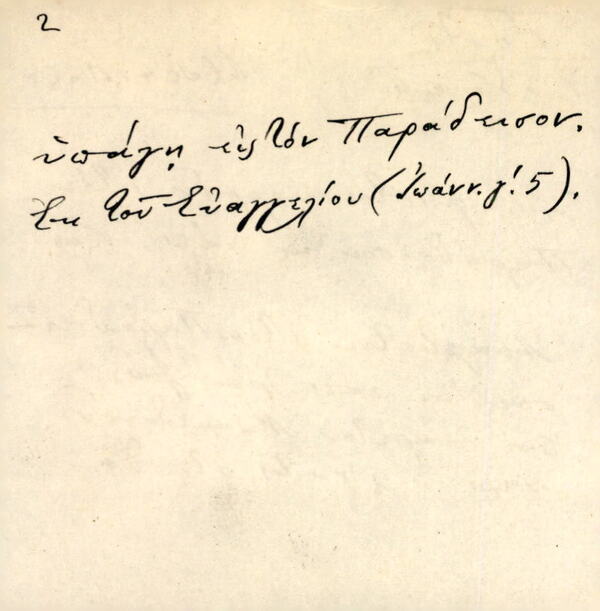 2
ὑπάγῃ εἰς τόν Παράδεισον.
Ἐκ τοῦ Εὐαγγελίου (Ἰωάνν. γ΄. 5).